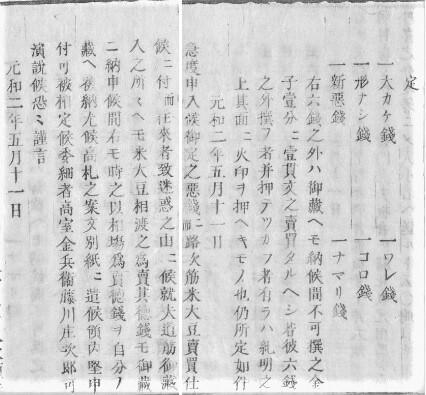 定
一大カケ錢 一ワレ錢
一形ナシ錢 一コロ錢
一新惡錢 一ナマリ錢
右六錢之外ハ御藏ヘモ納候間不可撰之金
子壹分ニ壹貫文之賣買タルヘシ若彼六錢
之外撰フ者并押テツカフ者有ラハ糺明之
上其面ニ火印ヲ押ヘキモノ也仍所定如件
元和二年五月十一日
急度申入候御定之惡錢ニ而路次筋米大豆賣買仕
候ニ付而往來者致迷惑之由ニ候就夫道筋御藏
入之所々ヘモ米大豆相渡之爲賣其徳錢モ御藏
ニ納申候間右モ時之以相場爲賣徳錢ヲ自分ノ
藏ヘ卷納尤候高札之案文別紙ニ遣候領内堅申
付可被相定候委細者高室金兵衞藤川庄次郎可
演説候恐々謹言
元和二年五月十一日